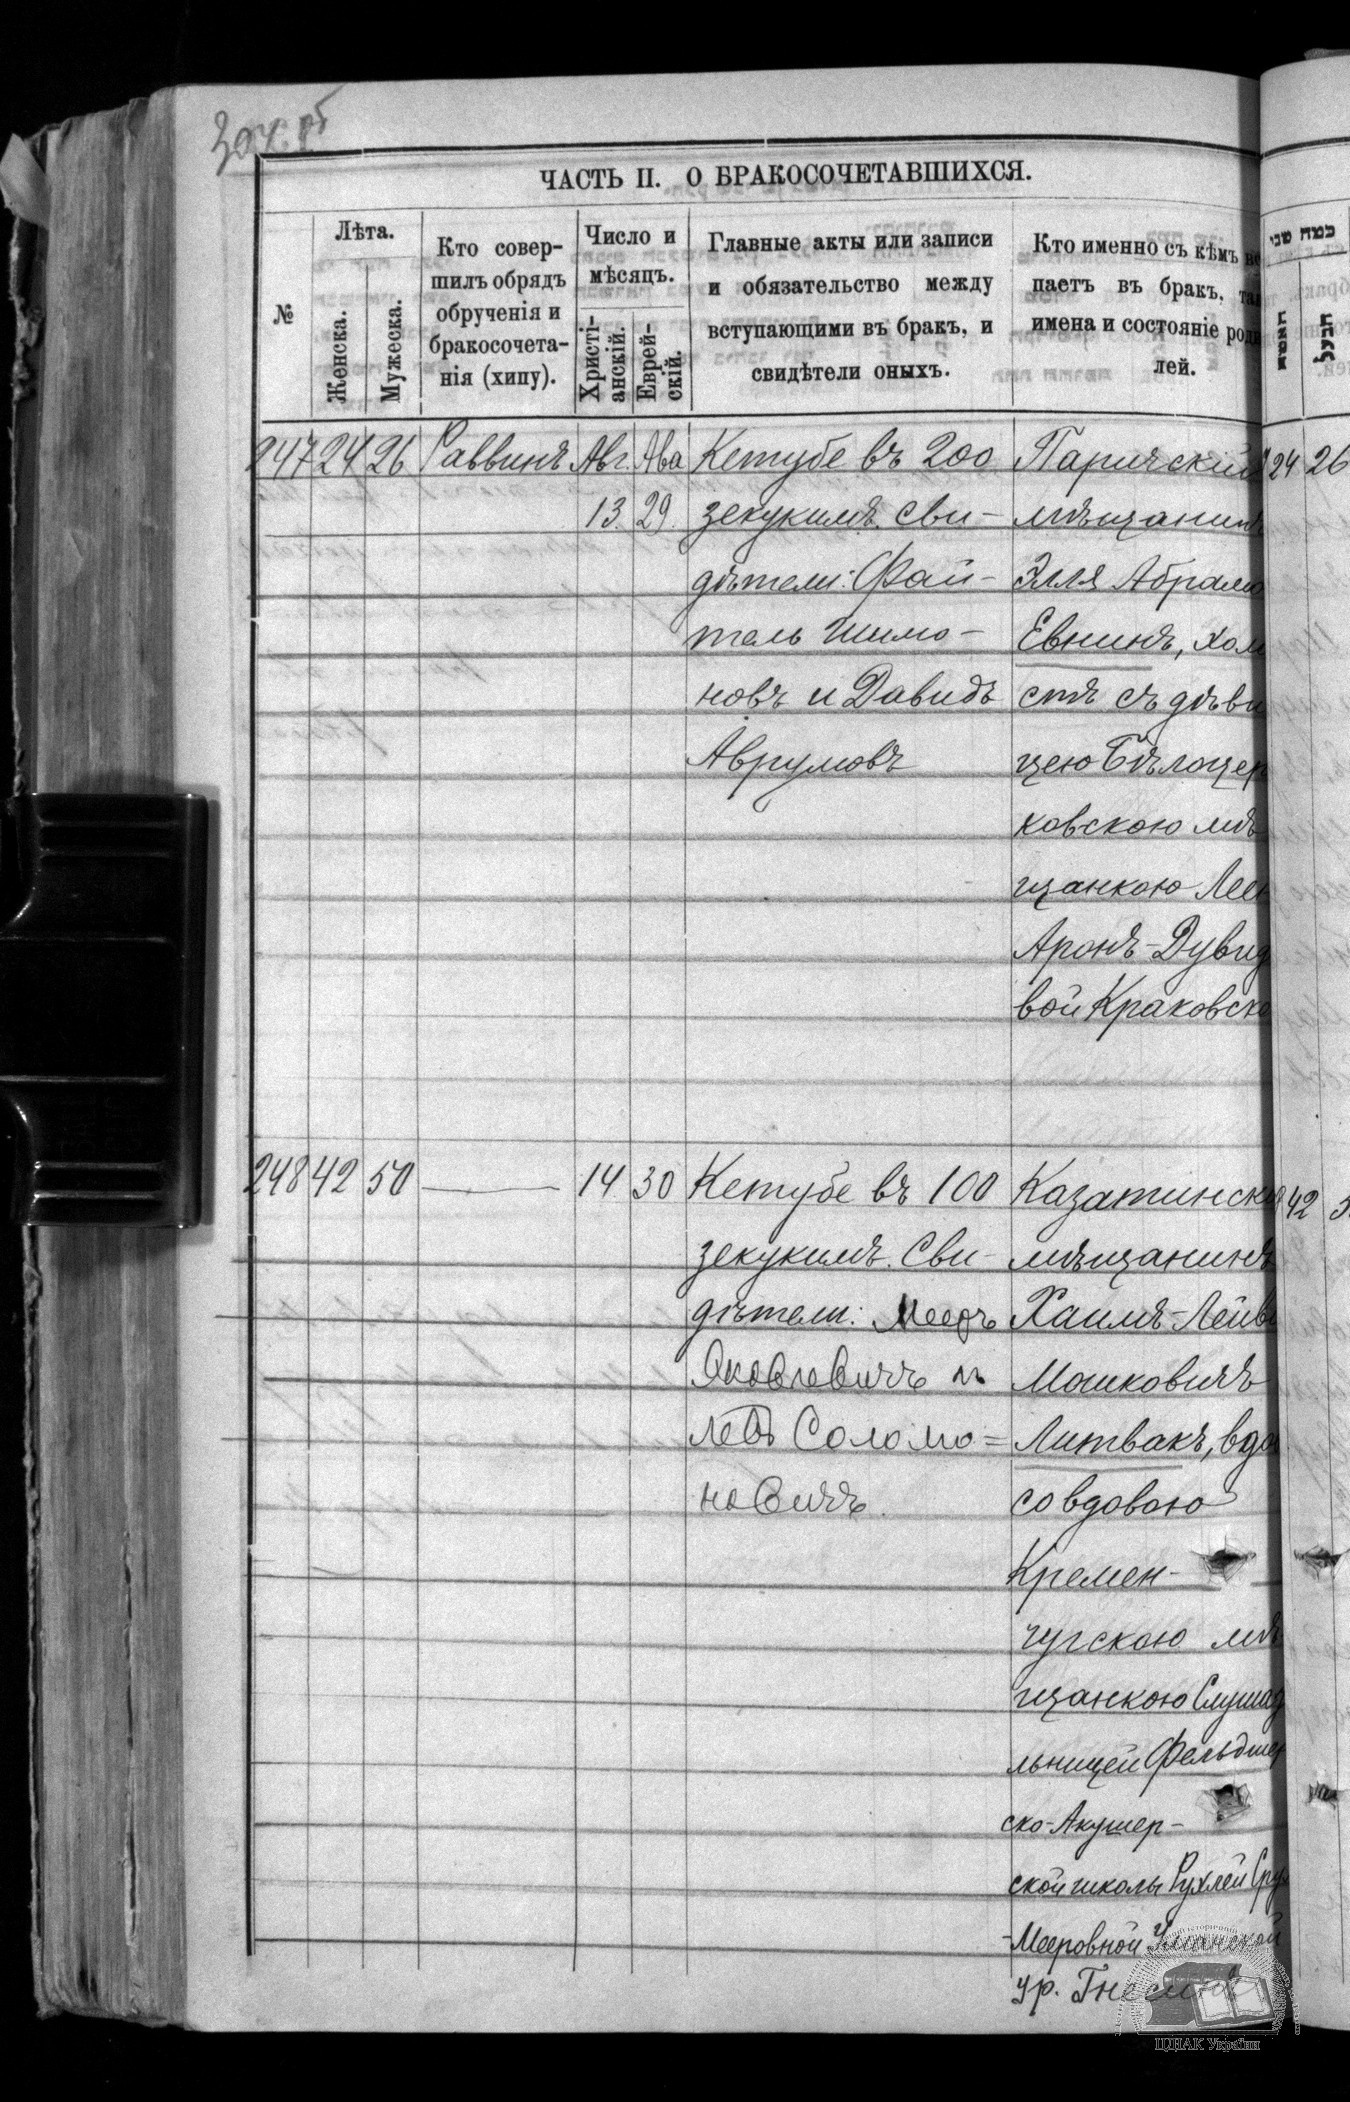 ЧАСТЬ II. О БРАКОСОЧЕТАВШИХСЯ.
№
Лѣта.
Женска.
Мужеска.
Кто совер-
шилъ обрядъ
обрученія и
бракосочета-
нія (хипу).
Число и
мѣсяцъ.
Христі-
анскій.
Еврей-
скій.
Главные акты или записи
и обязательство между
вступающими въ бракъ, и
свидѣтели оныхъ.
Кто именно съ кѣмъ
паетъ въ бракъ,
имена и состояніе
лей.
כמה שני
האשה
הבעל
247 24 26 Раввинъ Авг. Ава
13. 29.
Кетубе въ 200
зекукимъ. Сви-
дѣтели: Фай-
тель Шимо-
новъ и Давидъ
Аврумовъ
Паричскій
мѣщанинъ
Элля Абрамо
Евнинъ, хол
стъ съ дѣви
цею Бѣлоцер
ковскою мѣ
щанкою Лее
Аронъ-Дувид
вой Краковско
24 26
248 42 50 — 14 30
Кетубе въ 100
зекукимъ. Сви-
дѣтели: Мееръ
Яковлевичъ и
Левъ Соломо=
новичъ.
Казатинскій
мѣщанинъ
Хаимъ-Лейв
Мошковичъ
Литвакъ, вдов
со вдовою
Кремен-
чугскою мѣ
щанкою Слушат
льницей Фельдшер
ско-Акушер-
ской школы Рухлей Сру
-Мееровной Уманской
ур. Гнесина
42 5
ЦДІАК України